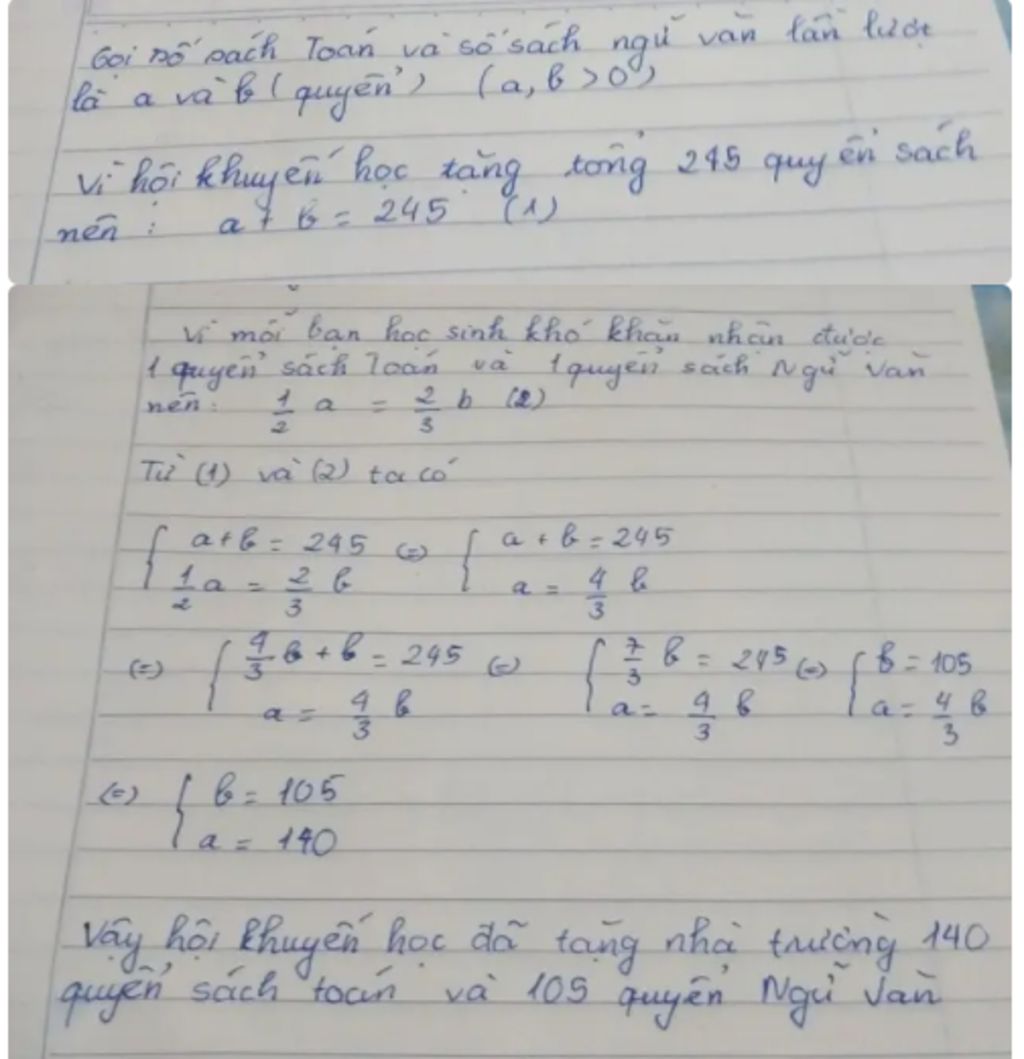 Gọi số sách Toán và số sách ngữ văn lần lượt
là a và b (quyển) (a, b > 0)
Vì hội khuyến học tặng tổng 245 quyển sách
nên : a + b = 245 (1)
Vì mỗi bạn học sinh khó khăn nhận được
1 quyển sách Toán và 1 quyển sách Ngữ Văn
nên: 1/2 a = 2/3 b (2)
Từ (1) và (2) ta có
{ a + b = 245 (=) { a + b = 245
{ 1/2 a = 2/3 b { a = 4/3 b
(=) { 4/3 b + b = 245 (=) { 7/3 b = 245 (=) { b = 105
{ a = 4/3 b { a = 4/3 b { a = 4/3 b
(=) { b = 105
{ a = 140
Vậy hội khuyến học đã tặng nhà trường 140
quyển sách toán và 105 quyển Ngữ Văn